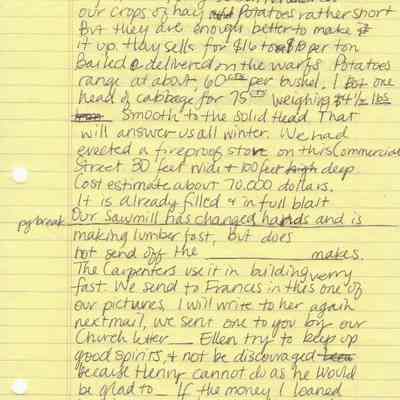 our crops of hay Potatoes rather short
But they are enough better to make
it up. Hay sells for $16 to $18 per ton
baled & delivered on the warfs. Potatoes
range at about 60 cts per bushel. I Bot one
head of cabbage for 75 cts weighing 1/2 lbs
Smooth to the solid Head. That
will answer us all winter. We had
erected a fireproof store on this Commercial
Street 30 feet wide & 100 feet high deep
Cost estimate about 70.000 dollars.
It is already filled & in full blast
pg break Our Sawmill has changed hands and is
making lumber fast, but does
not send off the ________ makes.
The Carpenters use it in building verry
fast. We send to Frances in this one of
our pictures, I will write to her again
next mail, we sent one to you by our
Church letter _ Ellen try to keep up
good spirits, & not be discouraged
because Henry cannot do as he would
be glad to _ If the money I loaned